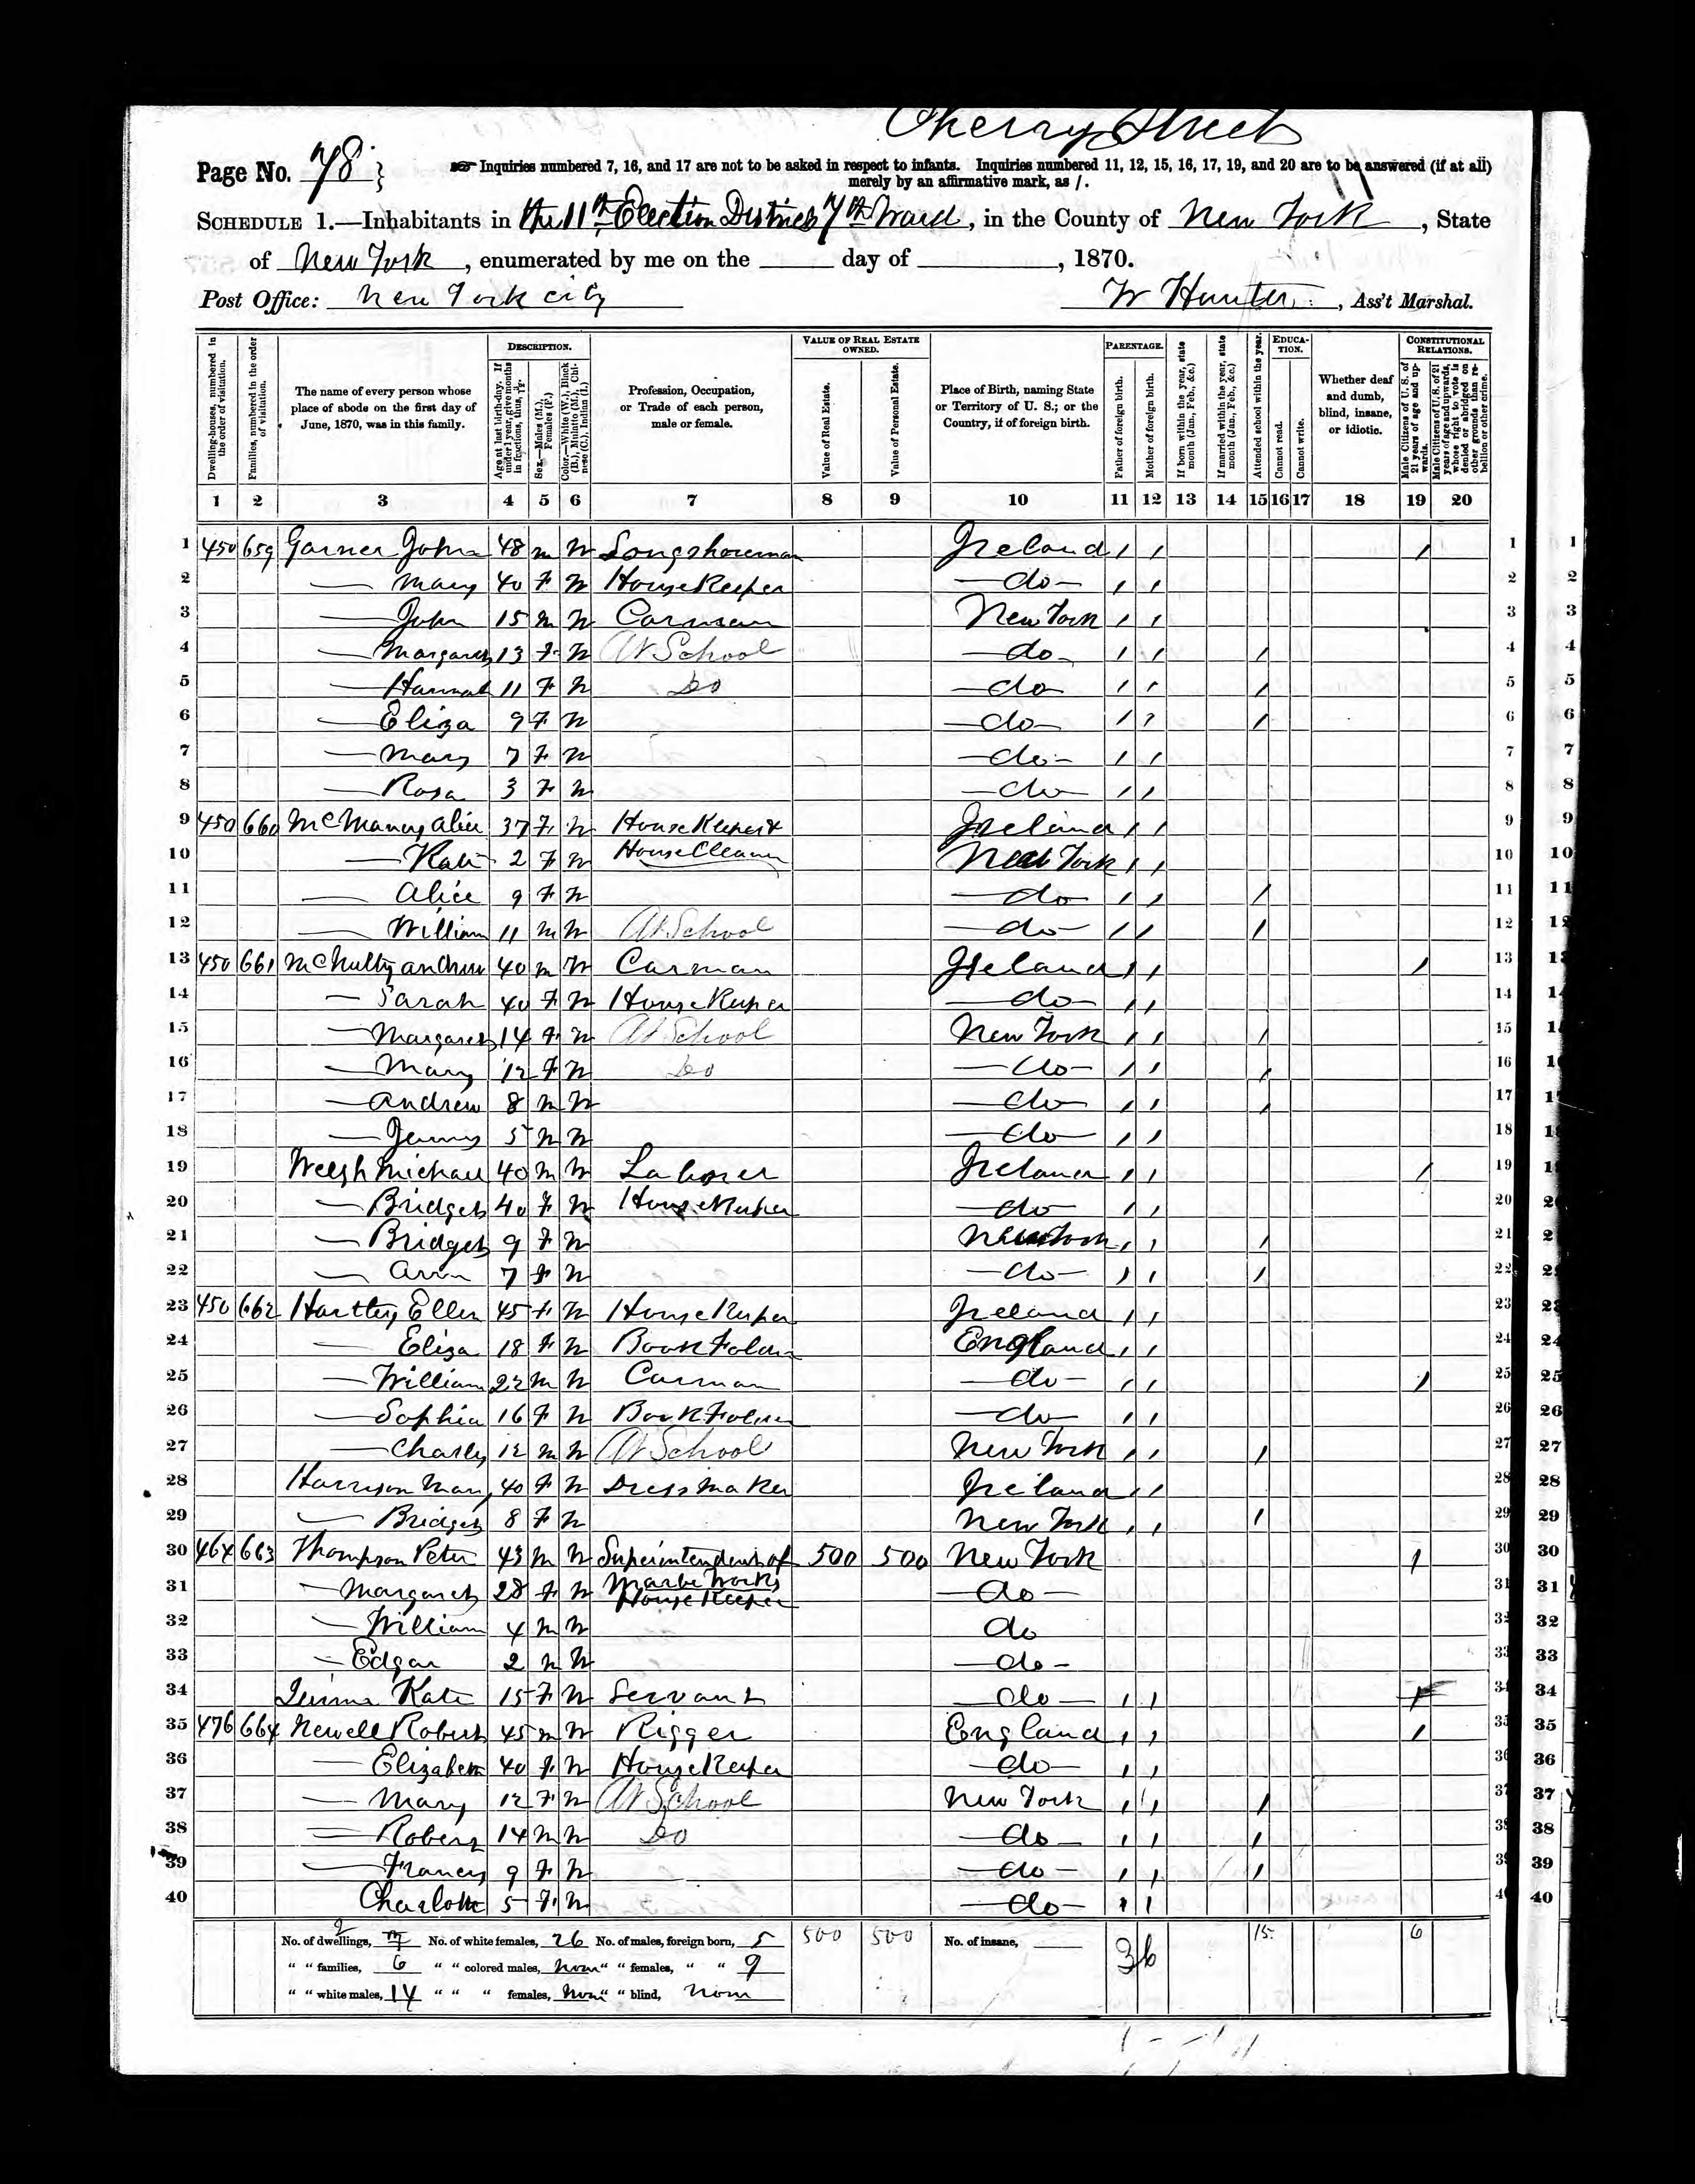 Cherry Street
Page No. 78 } ☞ Inquiries numbered 7, 16, and 17 are not to be asked in respect to infants. Inquiries numbered 11, 12, 15, 16, 17, 19, and 20 are to be answered (if at all)
merely by an affirmative mark, as /.
SCHEDULE 1.—Inhabitants in the 11th Election District 7th Ward, in the County of New York, State
of New York, enumerated by me on the ____ day of ____, 1870.
Post Office: New York city W Hunter, Ass't Marshal.
DESCRIPTION. VALUE OF REAL ESTATE OWNED. PARENTAGE. EDUCATION. CONSTITUTIONAL RELATIONS.
Dwelling-houses, numbered in the order of visitation. Families, numbered in the order of visitation. The name of every person whose place of abode on the first day of June, 1870, was in this family. Age at last birth-day. If under 1 year, give months in fractions, thus, 3/12. Sex.—Males (M.), Females (F.) Color.—White (W.), Black (B.), Mulatto (M.), Chinese (C.), Indian (I.) Profession, Occupation, or Trade of each person, male or female. Value of Real Estate. Value of Personal Estate. Place of Birth, naming State or Territory of U. S.; or the Country, if of foreign birth. Father of foreign birth. Mother of foreign birth. If born within the year, state month (Jan., Feb., &c.) If married within the year, state month (Jan., Feb., &c.) Attended school within the year. Cannot read. Cannot write. Whether deaf and dumb, blind, insane, or idiotic. Male Citizens of U. S. of 21 years of age and upwards. Male Citizens of U. S. of 21 years of age and upwards, whose right to vote is denied or abridged on other grounds than rebellion or other crime.
1 2 3 4 5 6 7 8 9 10 11 12 13 14 15 16 17 18 19 20
1 450 659 Garner John 48 m W Longshoreman Ireland / / / 1 1
2 — Mary 40 F W HouseKeeper —do— / / 2 2
3 — John 15 m W Carman New York / / 3 3
4 — Margaret 13 F W At School —do— / / / 4 4
5 — Hannah 11 F W Do —do— / / / 5 5
6 — Eliza 9 F W —do— / / / 6 6
7 — Mary 7 F W —do— / / 7 7
8 — Rosa 3 F W —do— / / 8 8
9 450 660 McManus Alice 37 F W HouseKeeper & Ireland / / 9 9
10 — Kate 2 F W House Cleaner New York / / 10 10
11 — Alice 9 F W —do— / / / 11 11
12 — William 11 m W At School —do— / / / 12 12
13 450 661 McNulty Andrew 40 m W Carman Ireland / / / 13
14 — Sarah 40 F W House Keeper —do— / / 14
15 — Margaret 14 F W At School New York / / / 15
16 — Mary 12 F W Do —do— / / / 16
17 — Andrew 8 m W —do— / / / 17
18 — 5 m W —do— / / 18
19 Welsh Michael 40 m W Laborer Ireland / / / 19
20 — Bridget 40 F W HouseKeeper —do— / / 20
21 — Bridget 9 F W New York / / / 21
22 — Ann 7 F W —do— / / / 22
23 450 662 Hartley Ellen 45 F W HouseKeeper Ireland / / 23
24 — Eliza 18 F W Book Folder England / / 24
25 — William 22 m W Carman —do— / / / 25 25
26 — Sophia 16 F W Book Folder —do— / / 26 26
27 — Charles 12 m W At School New York / / / 27 27
28 Harrison Mary 40 F W Dressmaker Ireland / / 28 28
29 — Bridget 8 F W New York / / / 29 29
30 464 663 Thompson Peter 43 m W Superintendent of 500 500 New York / 30 30
31 — Margaret 28 F W Marble Works House Keeper —do— 31 31
32 — William 4 m W do 32 32
33 — Edgar 2 m W —do— 33 33
34 Kate 15 F W Servant —do— / / 34 34
35 476 664 Newell Robert 45 m W Rigger England / / / 35 35
36 — Elizabeth 40 F W HouseKeeper —do— / / 36 36
37 — Mary 12 F W At School New York / / / 37 37
38 — Robert 14 m W Do —do— / / / 38 38
39 — Frances 9 F W —do— / / / 39 39
40 Charlotte 5 F W —do— / / 40 40
No. of dwellings, No. of white females, 26 No. of males, foreign born, 5 500 500 No. of insane, ____ 36 15 6
" " families, 6 " " colored males, None " " females, " " 9
" " white males, 14 " " " females, None " " blind, None